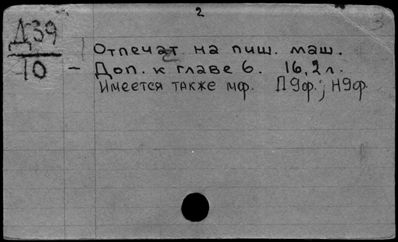 2
Д39
10
Отпечат на пиш. маш.
– Доп. к главе 6. 16,2 л.
Имеется также мф. П9ф.; Н9ф